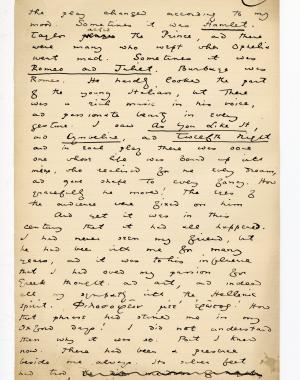 the play changed according to my
mood. Sometimes it was Hamlet.
Taylor acted the Prince, and there
were many who wept when Ophelia
went mad. Sometimes it was
Romeo and Juliet. Burbage was
Romeo. He hardly looked the part
of the young Italian, but there
was a rich music in his voice,
and passionate beauty in every
gesture. I saw As You Like It,
and Cymbeline, and Twelfth Night
and in each play there was some
one whose life was bound up with
mine, who realised for me every dream,
and gave shape to every fancy. How
gracefully he moved! The eyes of
the audience were fixed on him
And yet it was in this
century that it had all happened.
I had never seen my friend, but
he had been with me for many
years, and it was to his influence
that I had owed my passion for
Greek thought and art, and indeed
all my sympathy with the Hellenic
spirit. How
that phrase had stirred me in my
Oxford days! I did not understand
then why it was so. But I knew
now. There had been a presence
beside me always. Its silver feet
had trod